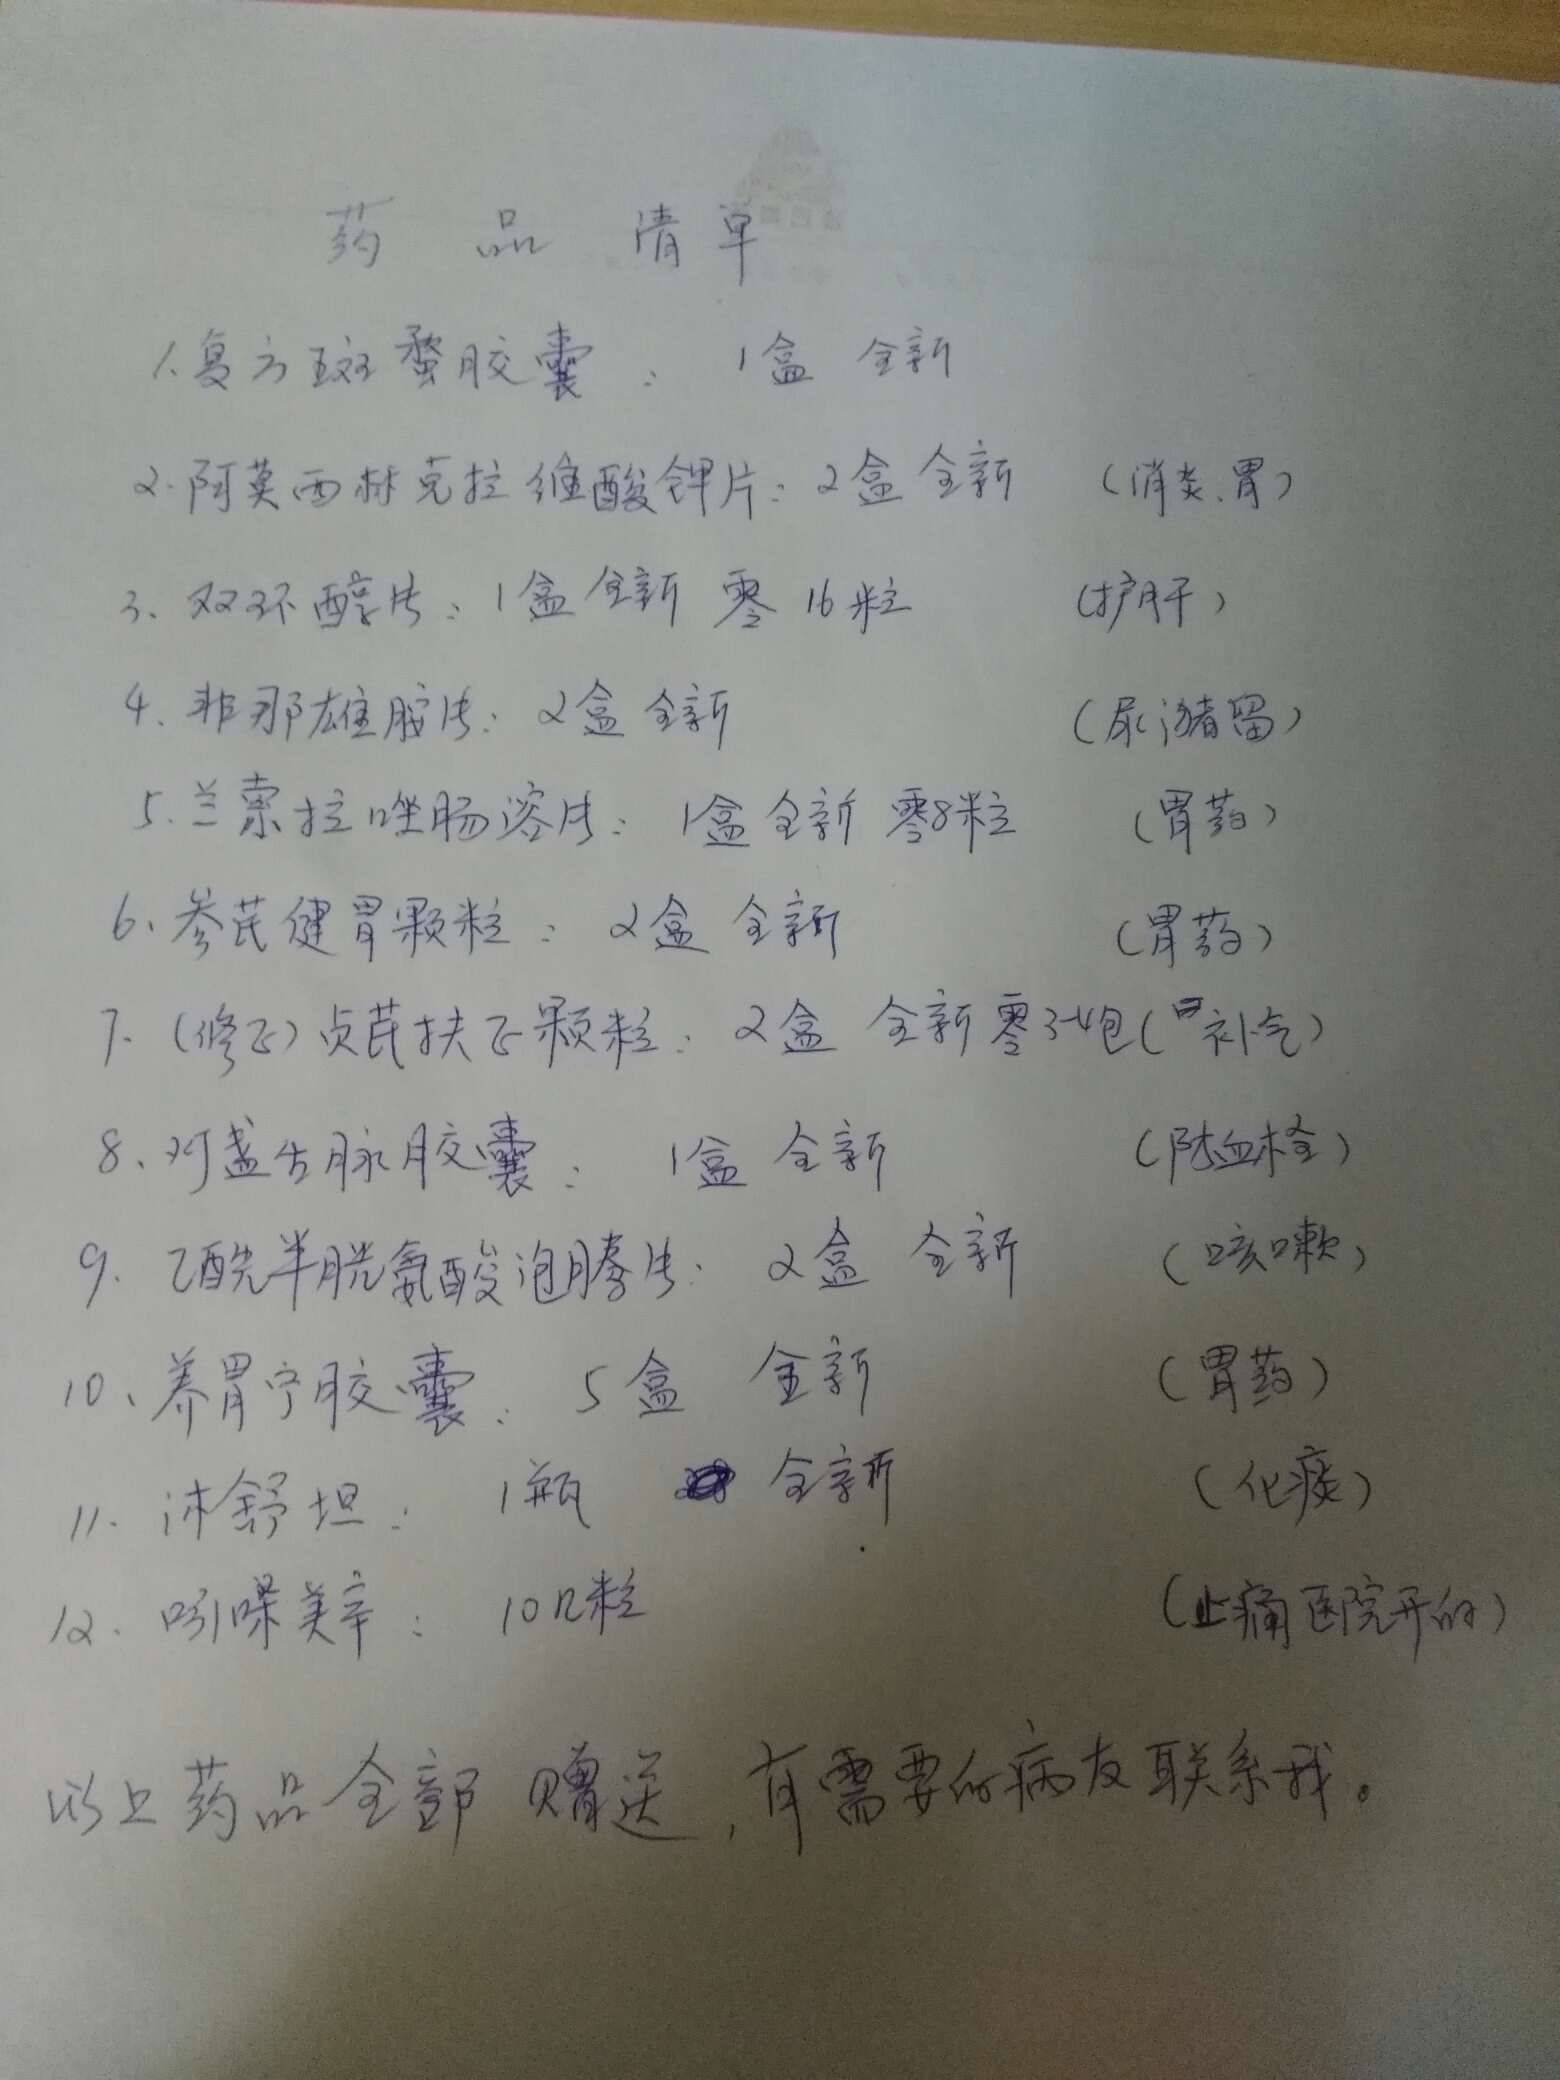 药品清单
1.复方斑蝥胶囊: 1盒 全新
2.阿莫西林克拉维酸钾片: 2盒 全新 (消炎、胃)
3、双环醇片: 1盒 全新 零16粒 (护肝)
4、非那雄胺片: 2盒 全新 (尿潴留)
5.兰索拉唑肠溶片: 1盒 全新 零8粒 (胃药)
6、参芪健胃颗粒: 2盒 全新 (胃药)
7.(修正)贞芪扶正颗粒: 2盒 全新 零3-4包(补气)
8、对盏生脉胶囊: 1盒 全新 (防血栓)
9.乙酰半胱氨酸泡腾片: 2盒 全新 (咳嗽)
10、养胃宁胶囊: 5盒 全新 (胃药)
11.沐舒坦: 1瓶 全新 (化痰)
12.吲哚美辛: 10几粒 (止痛医院开的)
以上药品全部赠送,有需要的病友联系我。